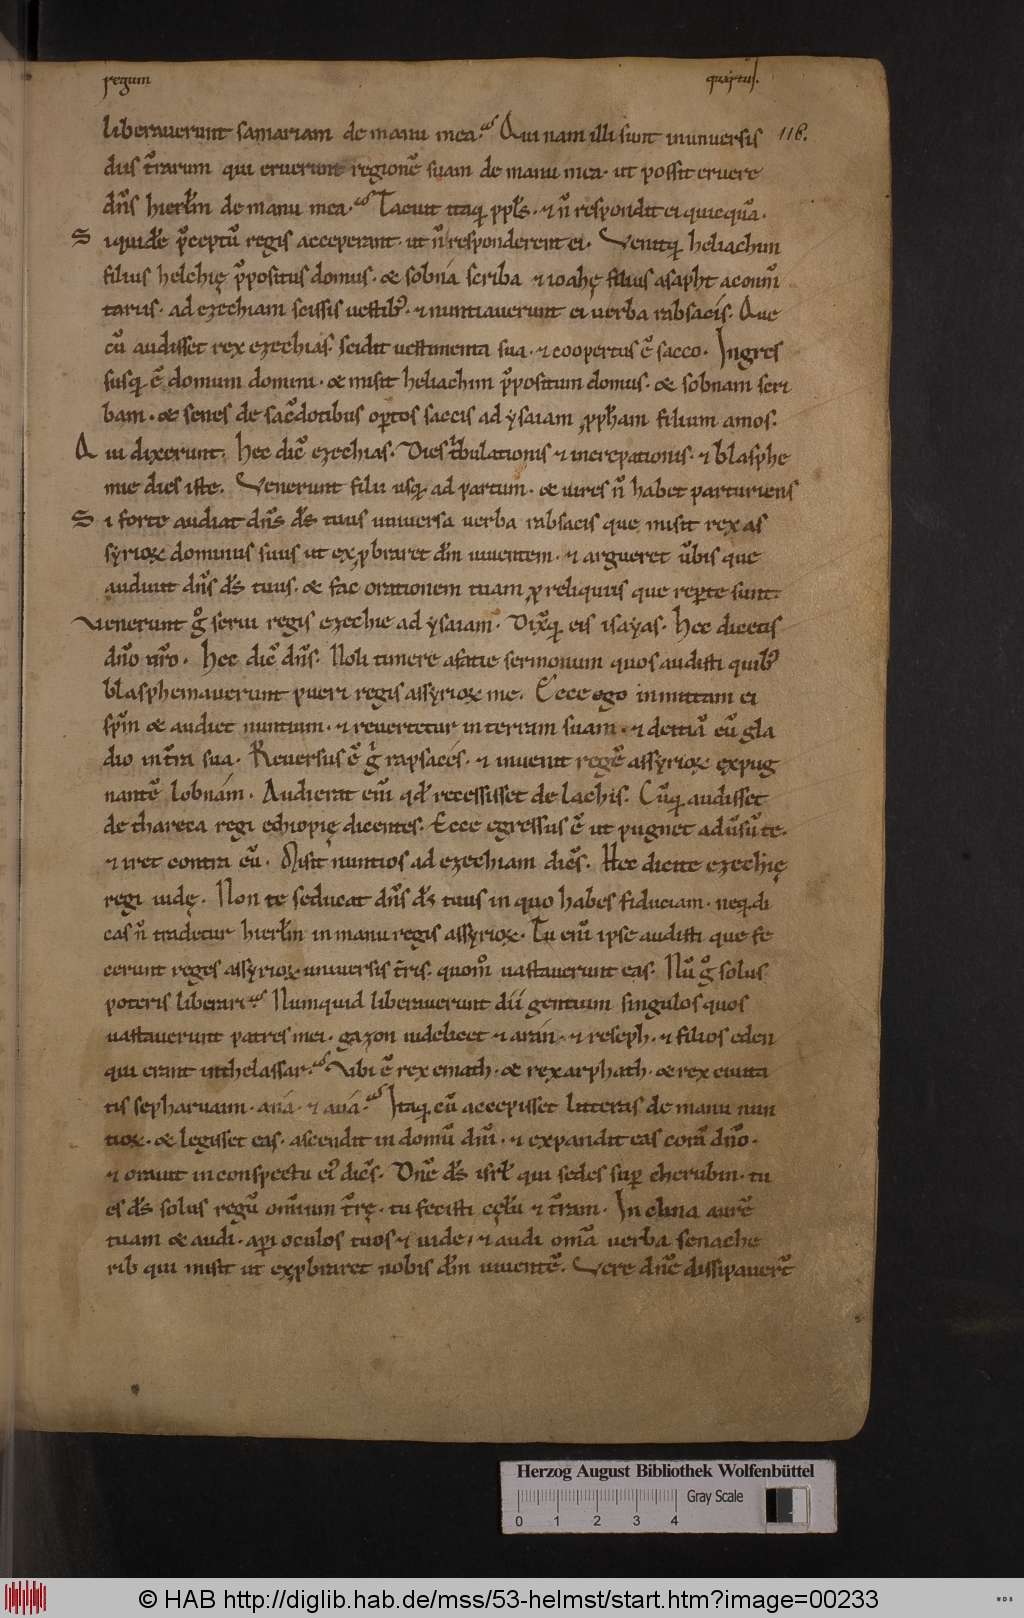 regum quartus.
116.
liberauerunt samariam de manu mea. Qui nam illi sunt in uniuersis
diis t̄rarum qui eruerunt regionē suam de manu mea. ut possit eruere
dn̄s hierłm de manu mea. Tacuit itaq; ppl̄s. ⁊ n̄ respondit ei quicquā.
Siquidē p̄ceptū regis acceperant. ut n̄ responderent ei. Venitq; heliachim
filius helchię p̄positus domus. & sobna scriba ⁊ ioahę filius asapht a com̄
tariis. ad ezechiam scissis uestib; ⁊ nuntiauerunt ei uerba rabsacis. Que
cū audisset rex ezechias. scidit uestimenta sua. ⁊ coopertus ē sacco. Ingres
susq; ē domum domini. & misit heliachim p̄positum domus. & sobnam scri
bam. & senes de sac̄dotibus op̄tos saccis ad ysaiam ꝓpham filium amos.
Qui dixerunt. Hec dic̄ ezechias. Dies t̄bulationis ⁊ increpationis. ⁊ blasphe
mie dies iste. Venerunt filii usq; ad partum. & uires n̄ habet parturiens
Si forte audiat dn̄s ds̄ tuus uniuersa uerba rabsacis que misit rex as
syrioꝝ dominus suus ut exꝓbraret dm̄ uiuentem. ⁊ argueret ūbis que
audiuit dn̄s ds̄ tuus. & fac orationem tuam ꝓ reliquiis que rep̄te sunt.
Venerunt g̊ serui regis ezechie ad ysaiam. Dix̄q; eis isayas. Hec dicetis
dn̄o ur̄o. Hec dic̄ dn̄s. Noli timere a facie sermonum quos audisti quib;
blasphemauerunt pueri regis assyrioꝝ me. Ecce ego inmittam ei
sp̄m & audiet nuntium. ⁊ reuertetur in terram suam. ⁊ deiciā eū gla
dio in t̄ra sua. Reuersus ē g̊ rapsaces. ⁊ inuenit regē assyrioꝝ expug
nantē lobnam. Audierat eni̅ qd̄ recessisset de lachis. Cūq; audisset
de thareca regi ethiopię dicentes. Ecce egressus ē ut pugnet adūsū te.
⁊ iret contra eū. Misit nuntios ad ezechiam dicēs. Hec dicite ezechię
regi iudę. Non te seducat dn̄s ds̄ tuus in quo habes fiduciam. neq; di
cas n̄ tradetur hierłm in manu regis assyrioꝝ. Tu eni̅ ipse audisti que fe
cerunt reges assyrioꝝ uniuersis t̄ris. quom̊ uastauerunt eas. Nū g̊ solus
poteris liberari. Numquid liberauerunt dii gentium singulos quos
uastauerunt patres mei. gazon uidelicet ⁊ aran. ⁊ reseph. ⁊ filios eden
qui erant in thelassar. Vbi ē rex emath. & rex arphath. & rex ciuita
tis sepharuaim. ana. ⁊ aua. Itaq; cū accepisset litteras de manu nun
tioꝝ. & legisset eas. ascendit in domū dni̅. ⁊ expandit eas corā dn̄o.
⁊ orauit in conspectu ei; dicēs. Dn̄e ds̄ isrł qui sedes sup̄ cherubin. tu
es ds̄ solus regū omniūm t̄rę. tu fecisti cęlū ⁊ t̄ram. Inclina aurē
tuam & audi. ap̄i oculos tuos ⁊ uide. ⁊ audi om̄a uerba senache
rib qui misit ut exꝓbraret nobis dm̄ uiuentē. Vere dn̄e dissipauer̄t
Herzog August Bibliothek Wolfenbüttel
Gray Scale
0 1 2 3 4
© HAB http://diglib.hab.de/mss/53-helmst/start.htm?image=00233